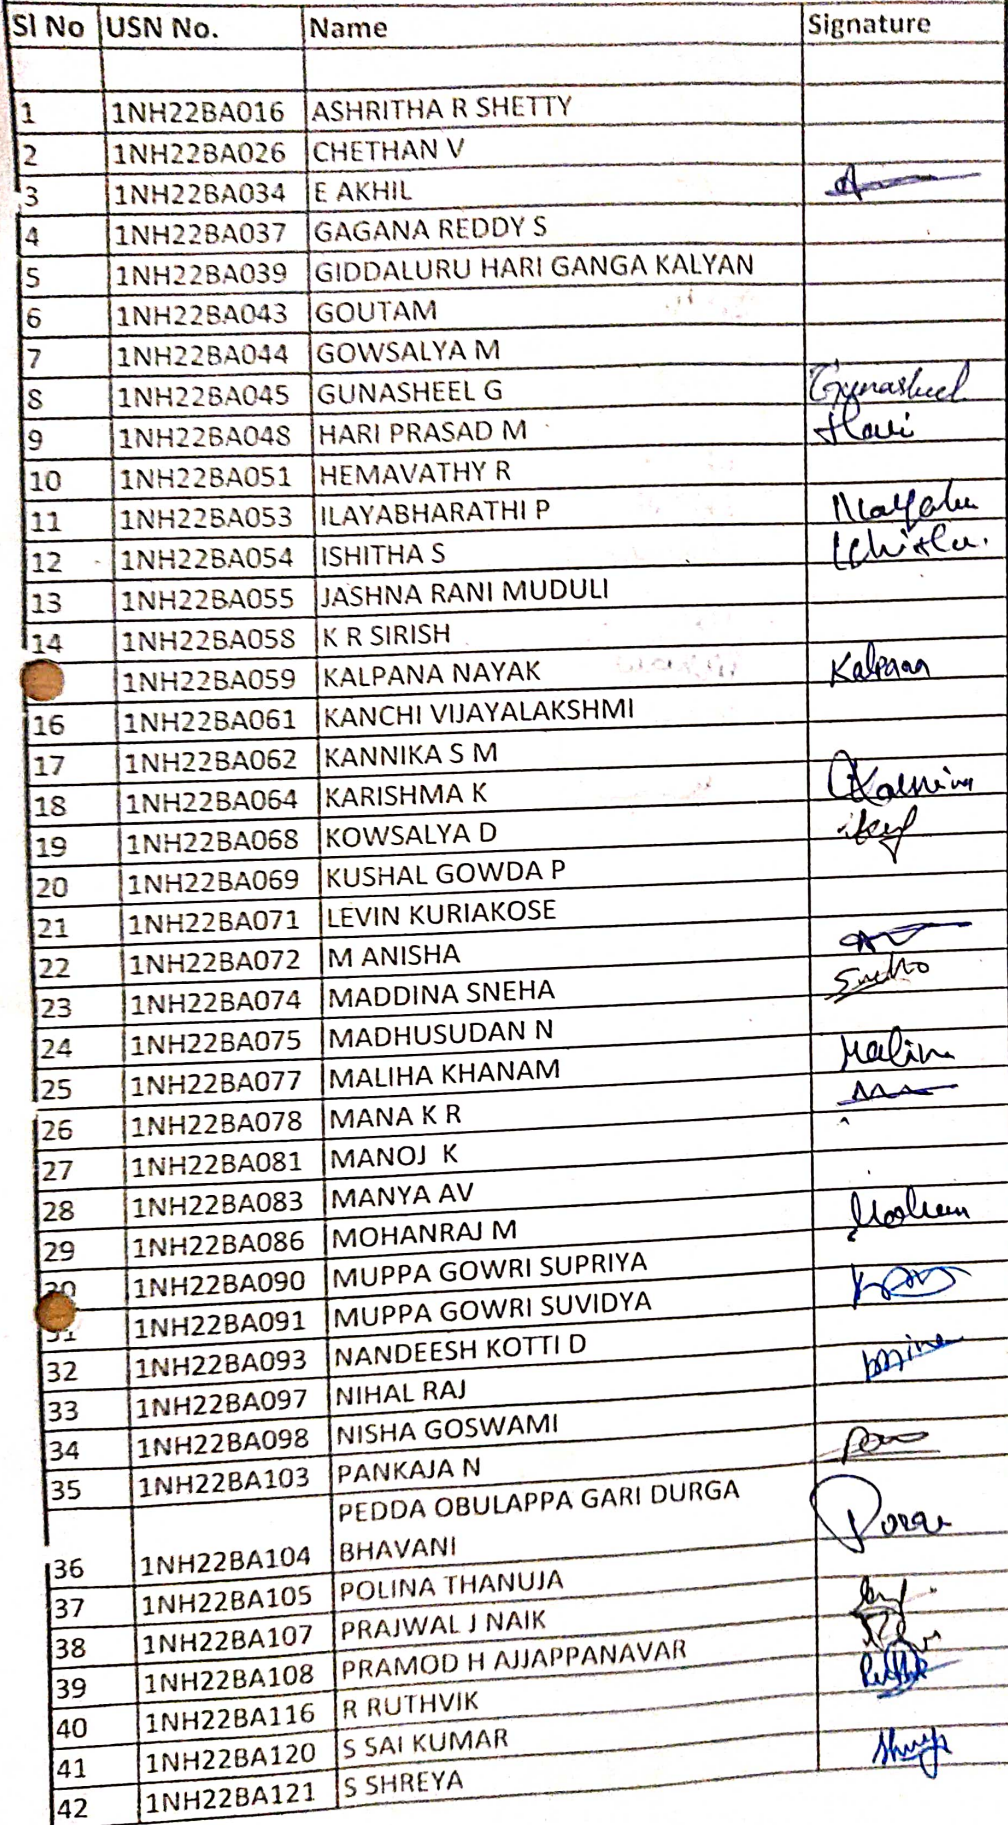 Sl No USN No. Name Signature
1 1NH22BA016 ASHRITHA R SHETTY
2 1NH22BA026 CHETHAN V
3 1NH22BA034 E AKHIL
4 1NH22BA037 GAGANA REDDY S
5 1NH22BA039 GIDDALURU HARI GANGA KALYAN
6 1NH22BA043 GOUTAM
7 1NH22BA044 GOWSALYA M
8 1NH22BA045 GUNASHEEL G Gunasheel
9 1NH22BA048 HARI PRASAD M Hari
10 1NH22BA051 HEMAVATHY R
11 1NH22BA053 ILAYABHARATHI P
12 1NH22BA054 ISHITHA S
13 1NH22BA055 JASHNA RANI MUDULI
14 1NH22BA058 K R SIRISH
1NH22BA059 KALPANA NAYAK Kalpana
16 1NH22BA061 KANCHI VIJAYALAKSHMI
17 1NH22BA062 KANNIKA S M
18 1NH22BA064 KARISHMA K
19 1NH22BA068 KOWSALYA D
20 1NH22BA069 KUSHAL GOWDA P
21 1NH22BA071 LEVIN KURIAKOSE
22 1NH22BA072 M ANISHA
23 1NH22BA074 MADDINA SNEHA Sneha
24 1NH22BA075 MADHUSUDAN N
25 1NH22BA077 MALIHA KHANAM
26 1NH22BA078 MANA K R
27 1NH22BA081 MANOJ K
28 1NH22BA083 MANYA AV
29 1NH22BA086 MOHANRAJ M
30 1NH22BA090 MUPPA GOWRI SUPRIYA
31 1NH22BA091 MUPPA GOWRI SUVIDYA
32 1NH22BA093 NANDEESH KOTTI D
33 1NH22BA097 NIHAL RAJ
34 1NH22BA098 NISHA GOSWAMI
35 1NH22BA103 PANKAJA N
PEDDA OBULAPPA GARI DURGA
36 1NH22BA104 BHAVANI
37 1NH22BA105 POLINA THANUJA
38 1NH22BA107 PRAJWAL J NAIK
39 1NH22BA108 PRAMOD H AJJAPPANAVAR
40 1NH22BA116 R RUTHVIK
41 1NH22BA120 S SAI KUMAR
42 1NH22BA121 S SHREYA